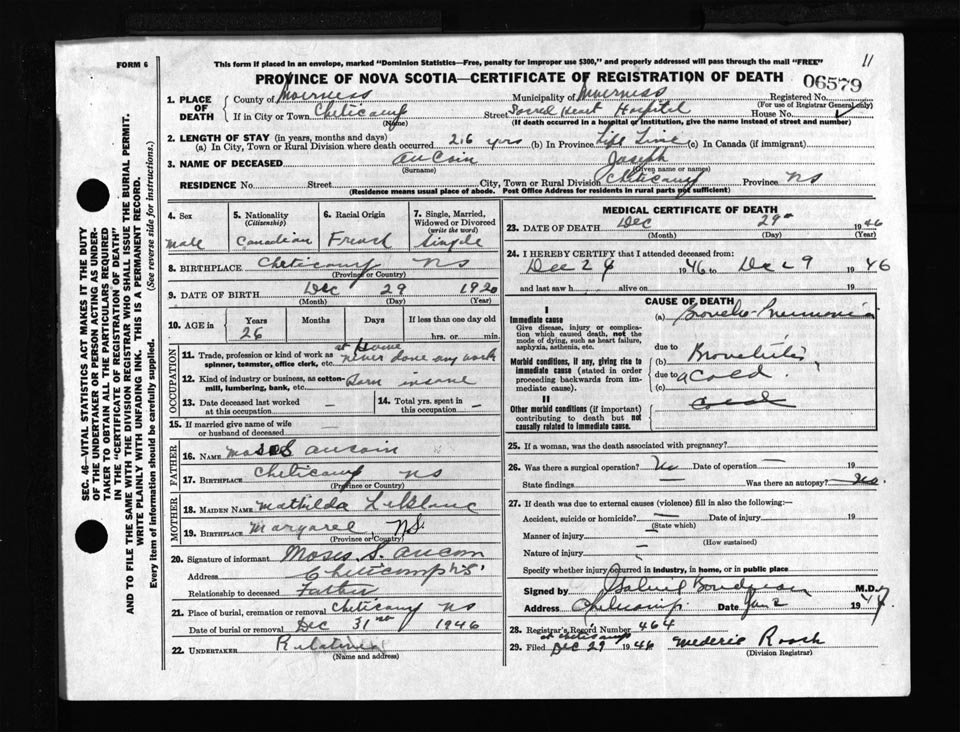 FORM 6
This form if placed in an envelope, marked "Dominion Statistics—Free, penalty for improper use $300," and properly addressed will pass through the mail "FREE"
11
PROVINCE OF NOVA SCOTIA—CERTIFICATE OF REGISTRATION OF DEATH
06579
1. PLACE OF DEATH
County of Inverness Municipality of Inverness Registered No.
(For use of Registrar General only)
If in City or Town Cheticamp Street Sacred Heart Hospital House No.
(Name) (If death occurred in a hospital of institution, give the name instead of street and number)
2. LENGTH OF STAY (in years, months and days)
(a) In City, Town or Rural Division where death occurred 26 yrs (b) In Province Life Time (c) In Canada (if immigrant)
3. NAME OF DECEASED AuCoin Joseph
(Surname) (Given name or names)
RESIDENCE No. Street City, Town or Rural Division Cheticamp Province NS
(Residence means usual place of abode. Post Office Address for residents in rural parts not sufficient)
4. Sex Male
5. Nationality (Citizenship) Canadian
6. Racial Origin French
7. Single, Married, Widowed or Divorced (write the word) Single
8. BIRTHPLACE Cheticamp NS
(Province or Country)
9. DATE OF BIRTH Dec 29 1920
(Month) (Day) (Year)
10. AGE in Years Months Days If less than one day old
26 hrs. or min.
OCCUPATION
11. Trade, profession or kind of work as spinner, teamster, office clerk, etc. at Home never done any work
12. Kind of industry or business, as cotton-mill, lumbering, bank, etc. Born insane
13. Date deceased last worked at this occupation —
14. Total yrs. spent in this occupation —
15. If married give name of wife or husband of deceased —
FATHER
16. NAME Moses S Aucoin
17. BIRTHPLACE Cheticamp NS
(Province or Country)
MOTHER
18. MAIDEN NAME Mathilda LeBlanc
19. BIRTHPLACE Margaree NS.
(Province or Country)
20. Signature of informant Moses S. Aucoin
Address Cheticamp N.S.
Relationship to deceased Father
21. Place of burial, cremation or removal Cheticamp NS
Date of burial or removal Dec 31 1946
22. UNDERTAKER Relatives
(Name and address)
MEDICAL CERTIFICATE OF DEATH
23. DATE OF DEATH Dec 29 1946
(Month) (Day) (Year)
24. I HEREBY CERTIFY that I attended deceased from:
Dec 1946 to Dec 29 1946
and last saw h alive on 19
CAUSE OF DEATH
I
Immediate cause
Give disease, injury or complication which caused death, not the mode of dying, such as heart failure, asphyxia, asthenia, etc.
(a) Broncho-Pneumonia
due to
Morbid conditions, if any, giving rise to immediate cause (stated in order proceeding backwards from immediate cause).
(b) Bronchitis
due to a cold
(c)
II
Other morbid conditions (if important) contributing to death but not causally related to immediate cause.
25. If a woman, was the death associated with pregnancy?
26. Was there a surgical operation? No Date of operation — 19
State findings Was there an autopsy? No.
27. If death was due to external causes (violence) fill in also the following:—
Accident, suicide or homicide? — Date of injury 19
(State which)
Manner of injury —
(How sustained)
Nature of injury —
Specify whether injury occurred in industry, in home, or in public place
Signed by Gabriel Boudreau M.D.
Address Cheticamp. Date Jan 2 1947
28. Registrar's Record Number 464
at Cheticamp
29. Filed Dec 29 1946 Mederic Roach
(Division Registrar)
SEC. 46—VITAL STATISTICS ACT MAKES IT THE DUTY OF THE UNDERTAKER OR PERSON ACTING AS UNDERTAKER TO OBTAIN ALL THE PARTICULARS REQUIRED IN THE "CERTIFICATE OF REGISTRATION OF DEATH" AND TO FILE THE SAME WITH THE DIVISION REGISTRAR WHO SHALL ISSUE THE BURIAL PERMIT.
WRITE PLAINLY WITH UNFADING INK. THIS IS A PERMANENT RECORD.
Every item of information should be carefully supplied. (See reverse side for instructions.)